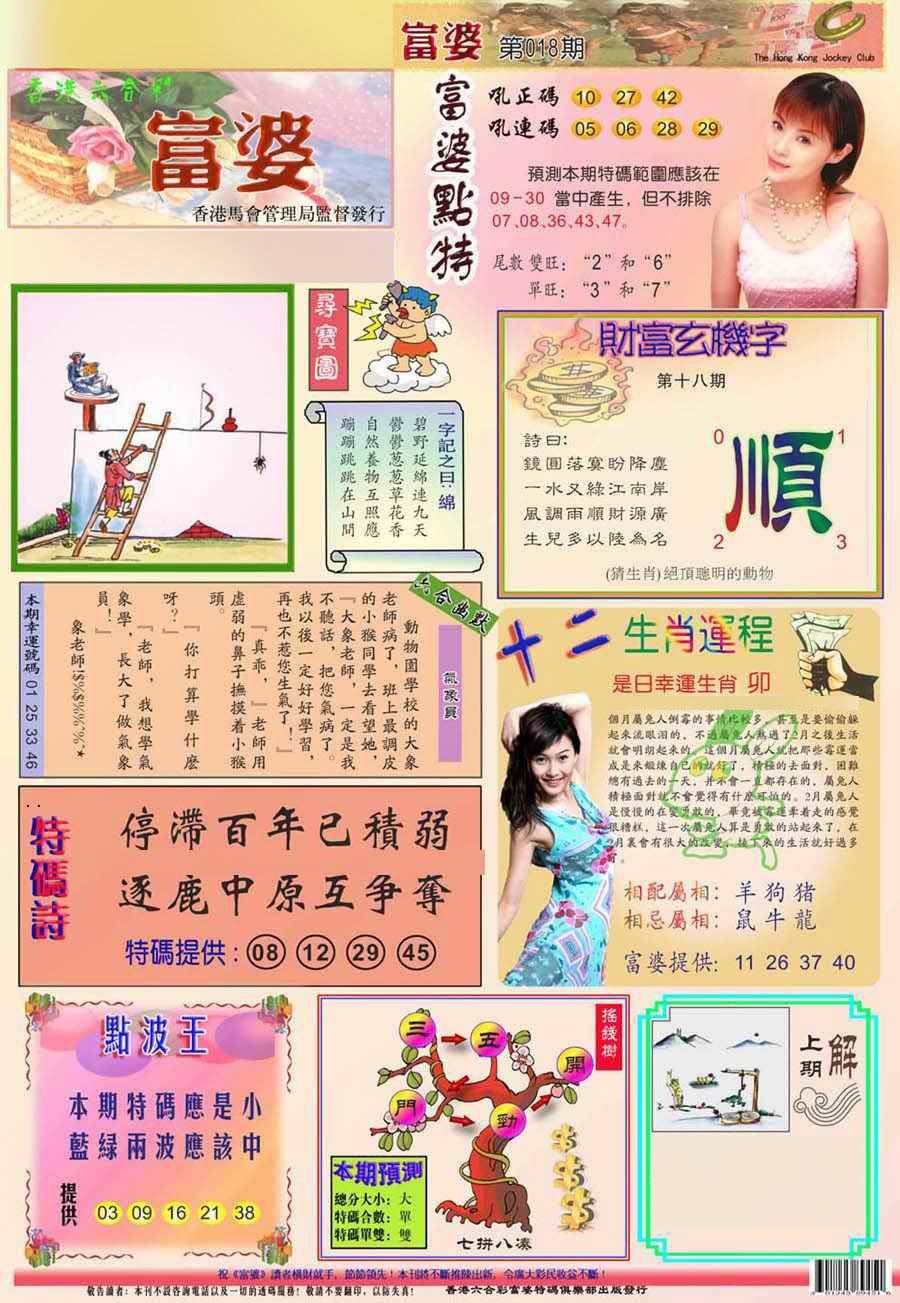 富婆 第018期
The Hong Kong Jockey Club
香港六合彩
富婆
香港馬會管理局監督發行
富婆點特
吼正碼 10 27 42
吼連碼 05 06 28 29
預測本期特碼範圍應該在
09-30 當中產生，但不排除
07、08、36、43、47。
尾數 雙旺：“2”和“6”
單旺：“3”和“7”
尋寶圖
一字記之曰：綿
碧野延綿連九天
鬱鬱葱葱草花香
自然養物互照應
蹦蹦跳跳在山間
財富玄機字
第十八期
詩曰：
鏡圓落寞盼降塵
一水又綠江南岸
風調雨順財源廣
生兒多以陸為名
0 1
順
2 3
(猜生肖)絕頂聰明的動物
六合幽默
氣象員
動物園學校的大象
老師病了，班上最調皮
的小猴同學去看望她，
『大象老師，一定是我
不聽話，把您氣病了，
我以後一定好好學習，
再也不惹您生氣了！』
『真乖，』老師用
虛弱的鼻子撫摸着小猴
頭。
『你打算學什麽
呀？』
『老師，我想學氣
象學，長大了做氣象
員！』
象老師!$%$%%*%*
本期幸運號碼 01 25 33 46
十二生肖運程
是日幸運生肖 卯
個月屬兔人倒霉的事情比較多，甚至是要偷偷躲
起來流眼泪的，不過屬兔人熬過了2月之後生活
就會明朗起來的，這個月屬兔人就把那些霉運當
成是來鍛煉自己的就好了，積極的去面對，困難
總有過去的一天，并不會一直都存在的，屬兔人
積極面對就不會覺得有什麽可怕的。2月屬兔人
是慢慢的在變勇敢的，畢竟被霉運牽着走的感覺
很糟糕，這一次屬兔人算是勇敢的站起來了，在
2月裏會有很大的改變，接下來的生活就好過多
了。
相配屬相：羊 狗 猪
相忌屬相：鼠 牛 龍
富婆提供：11 26 37 40
特碼詩
停滯百年已積弱
逐鹿中原互爭奪
特碼提供：08 12 29 45
點波王
本期特碼應是小
藍綠兩波應該中
提供 03 09 16 21 38
搖錢樹
三 五 開
門 勁
本期預測
總分大小：大
特碼合數：單
特碼單雙：雙
七拼八凑
上期解
祝《富婆》讀者橫財就手，節節領先！本刊將不斷推陳出新，令廣大彩民收益不斷！
敬告讀者：本刊不設咨詢電話以及一切的透碼服務！敬請不要翻印，以防失真！ 香港六合彩富婆特碼俱樂部出版發行